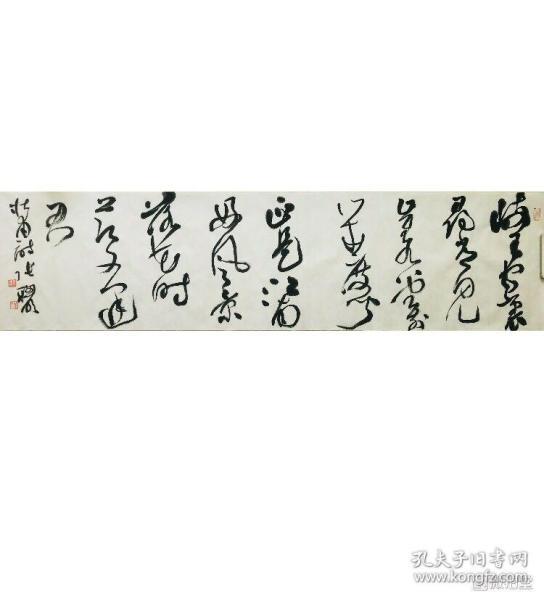 岐王宅裏
尋常見
崔九堂前
几度聞
正是江南
好風景
落花時
節又逢
君
杜甫詩
孔夫子旧书网
www.kongfz.com